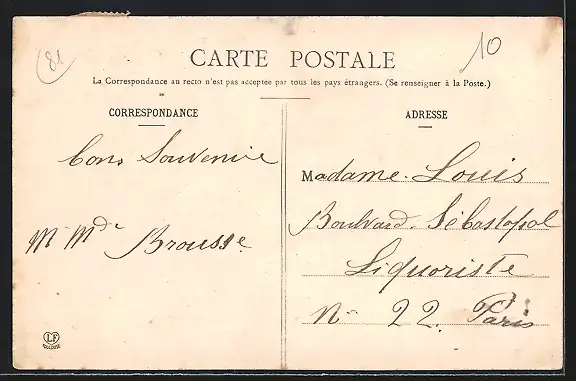 81
10
CARTE POSTALE
La Correspondance au recto n'est pas acceptée par tous les pays étrangers. (Se renseigner à la Poste.)
CORRESPONDANCE
Bons Souvenire
M Mde Brousse
ADRESSE
Madame Louis
Boulvard Sébastopol
Liquoriste
N- 22. Paris
LF